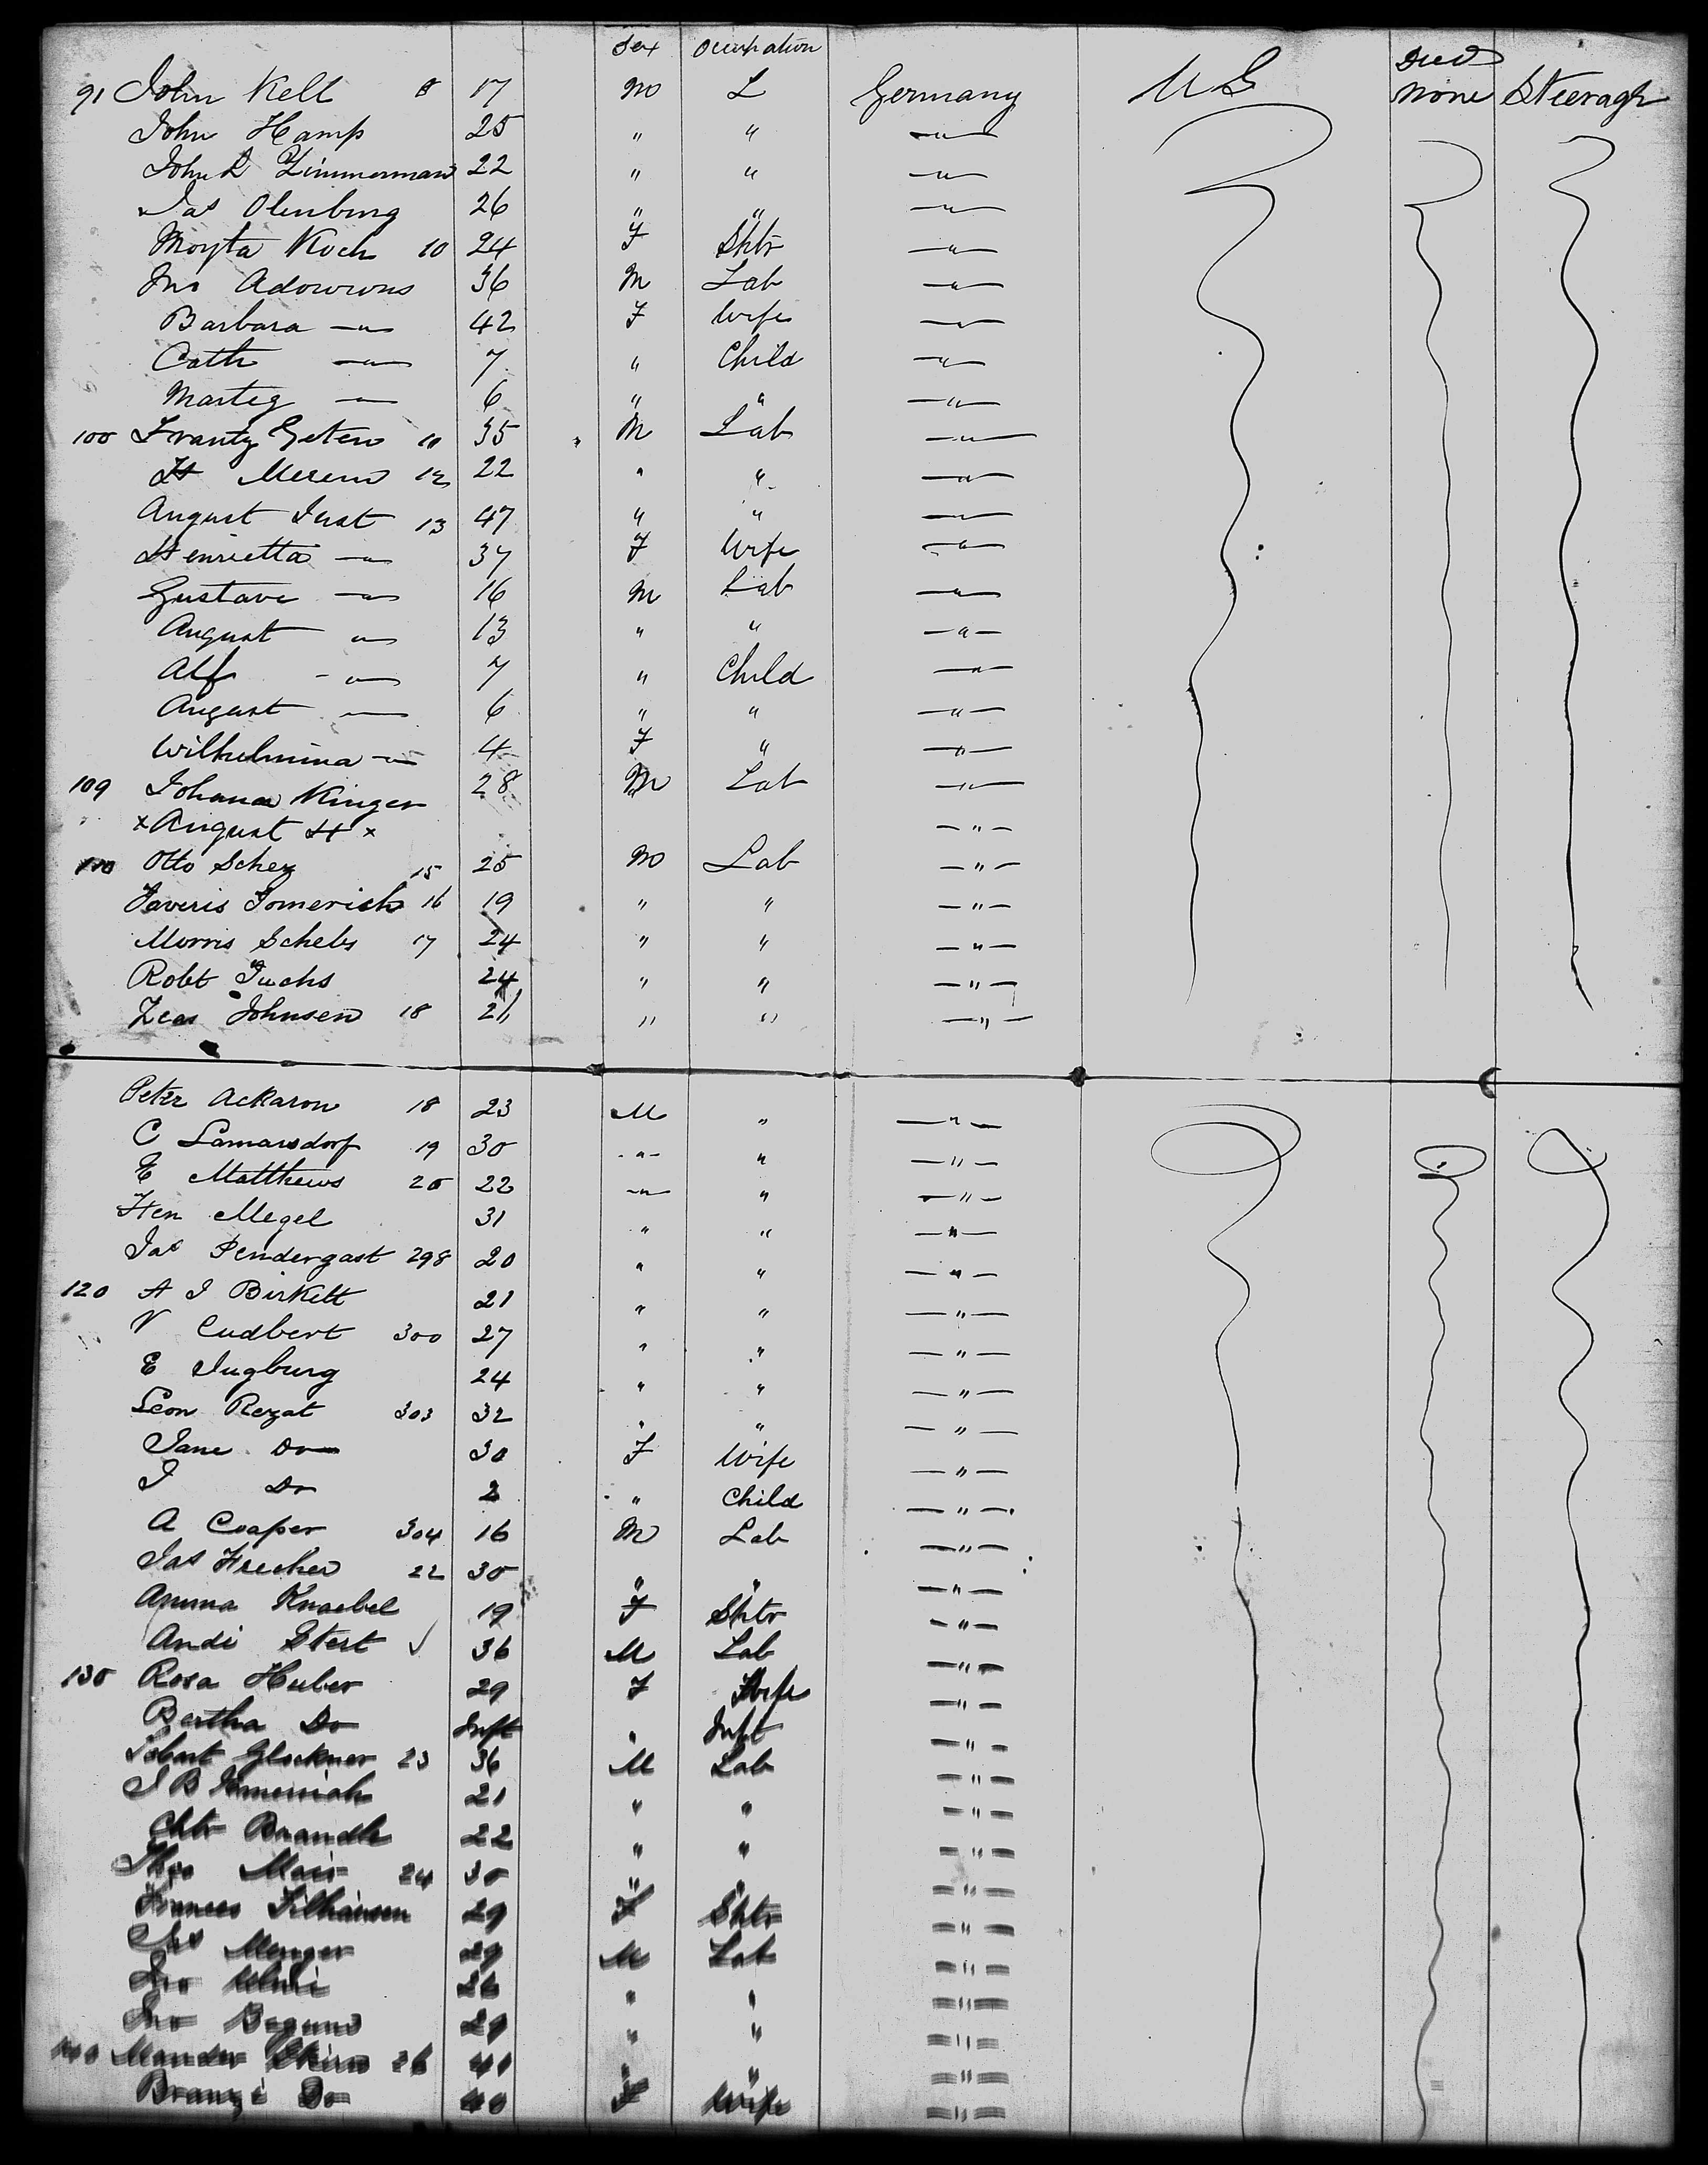 Sex Occupation
91 John Kell 8 17 M L Germany U S Died None Steerage
John Hamp 25 " " — " —
John L Zimmerman 22 " " — " —
Jas Olenburg 26 " " — " —
Koch 10 24 F Shtr — " —
Jno 36 M Lab — " —
Barbara — " — 42 F Wife — " —
Cath — " — 7 " Child — " —
— " — 6 " " — " —
100 Frantz Geten 11 35 M Lab — " —
12 22 " " — " —
August Just 13 47 " " — " —
Henrietta — " — 37 F Wife — " —
Gustave — " — 16 M Lab — " —
August — " — 13 " " — " —
Alf — " — 7 " Child — " —
August — " — 6 " " — " —
Wilhelmina — " — 4 F " — " —
109 Johana Kinger 28 M Lab — " —
x August H x — " —
110 Otto Schez 15 25 M Lab — " —
16 19 " " — " —
Morris Schebs 17 24 " " — " —
Robt Fuchs 24 " " — " —
Johnsen 18 21 " " — " —
Peter Ackaron 18 23 M " — " —
C Lamarsdorf 19 30 " " — " —
E Matthews 20 22 " " — " —
Hen Megel 31 " " — " —
Jas Pendergast 298 20 " " — " —
120 A J Birkett 21 " " — " —
V Cudbert 300 27 " " — " —
E Jugburg 24 " " — " —
Leon Rezat 303 32 " " — " —
Jane Do 30 F Wife — " —
J Do 2 " Child — " —
A Coaper 304 16 M Lab — " —
Jas Frecher 22 30 " " — " —
Amma Knaebel 19 F Shtr — " —
Andi Stert √ 36 M Lab — " —
130 Rosa Huber 29 F Wife — " —
Bertha Do Inft " Inft — " —
Glockner 23 36 M Lab — " —
J B 21 " " — " —
Chtr Brandle 22 " " — " —
Thos Mair 24 30 " " — " —
Frances 29 F Shtr — " —
Menger 29 M Lab — " —
Jno 26 " " — " —
Jno 29 " " — " —
140 26 41 " " — " —
Do 40 F Wife — " —